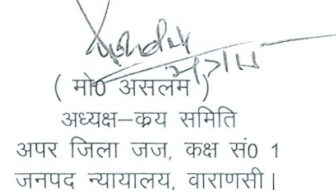 ( मो0 असलम )
अध्यक्ष–क्रय समिति
अपर जिला जज, कक्ष सं0 1
जनपद न्यायालय, वाराणसी।